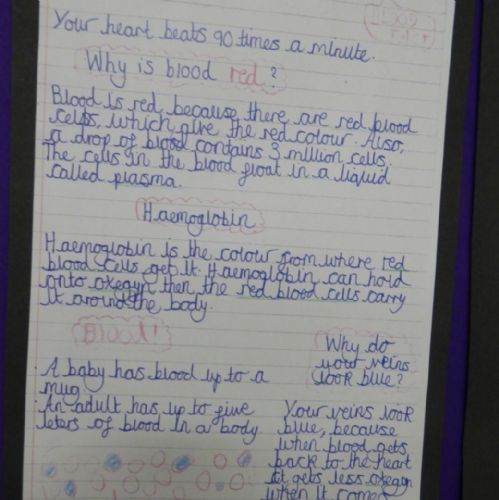 Blood
Your heart beats 90 times a minute.
Why is blood red?
Blood is red because there are red blood
cells, which give the red colour. Also,
a drop of blood contains 3 million cells.
The cells in the blood float in a liquid
called plasma.
Haemoglobin
Haemoglobin is the colour from where red
blood cells get it. Haemoglobin can hold
onto oxegyn then the red blood cells carry
it around the body.
Blood!
A baby has blood up to a
mug.
An adult has up to five
leters of blood in a body.
Why do
your veins
look blue?
Your veins look
blue, because
when blood gets
back to the heart
it gets less oxegyn
when it